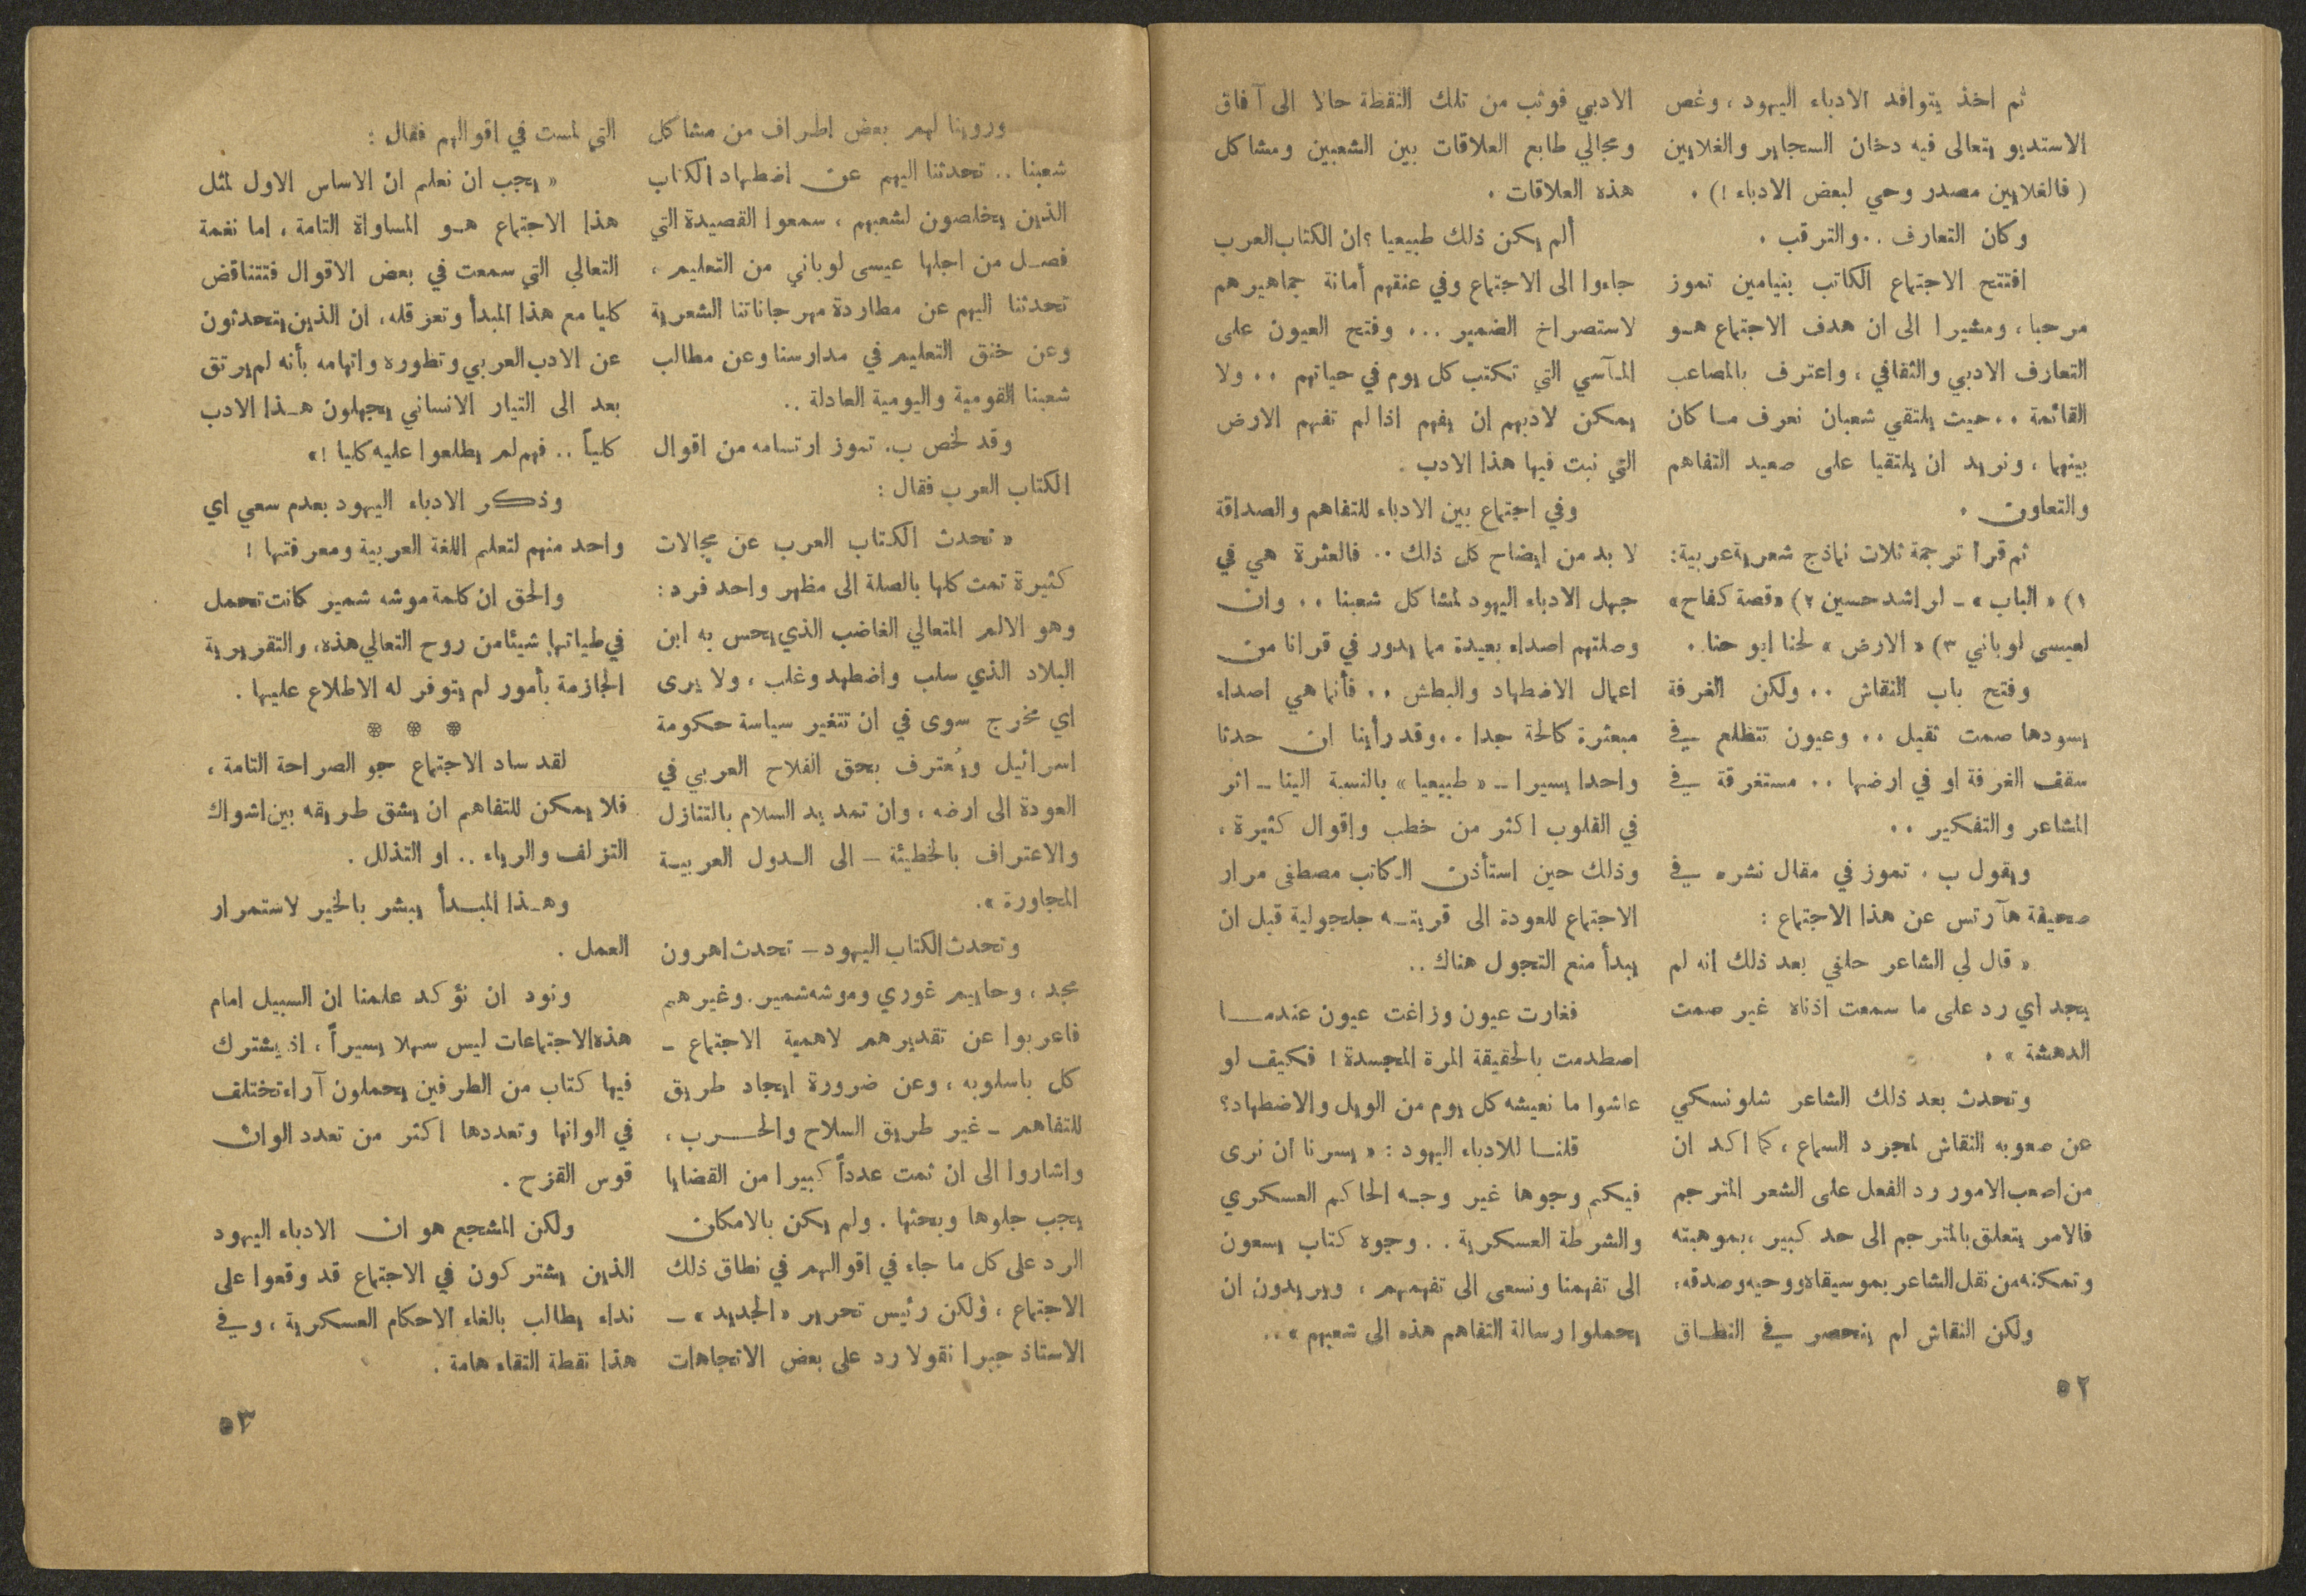 ثم اخذ يتوافد الادباء اليهود ، وغص
الاستديو يتعالى فيه دخان السجاير والغلايين
( فالغلايين مصدر وحي لبعض الادباء ! ) .
وكان التعارف . . والترقب .
افتتح الاجتماع الكاتب بنيامين تموز
مرحبا ، ومشيرا الى ان هدف الاجتماع هـو
التعارف الادبي والثقافي ، واعترف بالمصاعب
القائمة . . حيث يلتقي شعبان نعرف مـا كان
بينهما ، ونريد ان يلتقيا على صعيد التفاهم
والتعاون .
ثم قرأ ترجمة ثلاث نماذج شعرية عربية :
١) « الباب » - لراشد حسين ٢) «قصة كفاح»
لعيسى لوباني ٣) « الارض » لحنا ابو حنا .
وفتح باب النقاش . . ولكن الغرفة
يسودها صمت ثقيل . . وعيون تتطلع في
سقف الغرفة او في ارضها . . مستغرقة في
المشاعر والتفكير . .
ويقول ب . تموز في مقال نشره في
صحيفة هآرتس عن هذا الاجتماع :
« قال لي الشاعر حلفي بعد ذلك انه لم
يجد أي رد على ما سمعت اذناه غير صمت
الدهشة » .
وتحدث بعد ذلك الشاعر شلونسكي
عن صعوبه النقاش لمجرد السماع ، كما اكد ان
من اصعب الامور رد الفعل على الشعر المترجم
فالامر يتعلق بالمترجم الى حد كبير ، بموهبته
وتمكنه من نقل الشاعر بموسيقاه ووحيه وصدقه ،
ولكن النقاش لم ينحصر في النطـاق
الادبي فوثب من تلك النقطة حالا الى آفاق
ومجالي طابع العلاقات بين الشعبين ومشاكل
هذه العلاقات .
ألم يكن ذلك طبيعيا ؟ ان الكتاب العرب
جاءوا الى الاجتماع وفي عنقهم أمانة جماهيرهم
لاستصراخ الضمير . . . وفتح العيون على
المـآسي التي تكتب كل يوم في حياتهم . . ولا
يمكن لادبهم ان يفهم اذا لم تفهم الارض
التي نبت فيها هذا الادب .
وفي اجتماع بين الادباء للتفاهم والصداقة
لا بد من ايضاح كل ذلك . . فالعثرة هي في
جهل الادباء اليهود لمشاكل شعبنا . . وان
وصلتهم اصداء بعيدة مما يدور في قرانا من
اعمال الاضطهاد والبطش . . فأنما هي اصداء
مبعثرة كالحة جدا . . وقد رأينا ان حدثا
واحدا يسيرا - « طبيعيا » بالنسبة الينا - اثر
في القلوب اكثر من خطب واقوال كثيرة ،
وذلك حين استأذن الكاتب مصطفى مرار
الاجتماع للعودة الى قريتـه جلجولية قبل ان
يبدأ منع التجول هناك . .
فغارت عيون وزاغت عيون عندمـا
اصطدمت بالحقيقة المرة المجسدة ! فكيف لو
عاشوا ما نعيشه كل يوم من الويل والاضطهاد؟
قلنـا للادباء اليهود : « يسرنا ان نرى
فيكم وجوها غير وجـه الحاكم العسكري
والشرطة العسكرية . . وجوه كتاب يسعون
الى تفهمنا ونسعى الى تفهمهم ، ويريدون ان
يحملوا رسالة التفاهم هذه الى شعبهم » . .
٥٢
وروينا لهم بعض اطراف من مشاكل
شعبنا . . تحدثنا اليهم عن اضطهاد الكتاب
الذين يخلصون لشعبهم ، سمعوا القصيدة التي
فصـل من اجلها عيسى لوباني من التعليم ،
تحدثنا اليهم عن مطاردة مهرجاناتنا الشعرية
وعن خنق التعليم في مدارسنا وعن مطالب
شعبنا القومية واليومية العادلة . .
وقد لخص ب. تموز ارتسامه من اقوال
الكتاب العرب فقال :
« تحدث الكتاب العرب عن مجالات
كثيرة تمت كلها بالصلة الى مظهر واحد فرد :
وهو الالم المتعالي الغاضب الذي يحس به ابن
البلاد الذي سلب واضطهد وغلب ، ولا يرى
اي مخرج سوى في ان تتغير سياسة حكومة
اسرائيل ويُعترف بحق الفلاح العربي في
العودة الى ارضه ، وان تمد يد السلام بالتنازل
والاعتراف بالخطيئة - الى الـدول العربيـة
المجاورة ».
وتحدث الكتاب اليهود - تحدث اهرون
مجد ، وحاييم غوري وموشه شمير . وغيرهم
فاعربوا عن تقديرهم لاهمية الاجتماع -
كل باسلوبه ، وعن ضرورة ايجاد طريق
للتفاهم - غير طريق السلاح والحـرب ،
واشاروا الى ان ثمت عدداً كبيرا من القضايا
يجب جلوها وبحثها . ولم يكن بالامكان
الرد على كل ما جاء في اقوالهم في نطاق ذلك
الاجتماع ، ولكن رئيس تحرير « الجديد » -
الاستاذ جبرا نقولا رد على بعض الاتجاهات
التي لمست في اقوالهم فقال :
« يجب ان نعلم ان الاساس الاول لمثل
هذا الاجتماع هـو المساواة التامة ، اما نغمة
التعالي التي سمعت في بعض الاقوال فتتناقض
كليا مع هذا المبدأ وتعرقله ، ان الذين يتحدثون
عن الادب العربي وتطوره واتهامه بأنه لم يرتق
بعد الى التيار الانساني يجهلون هـذا الادب
كلياً . . فهم لم يطلعوا عليه كليا ! »
وذكر الادباء اليهود بعدم سعي اي
واحد منهم لتعلم اللغة العربية ومعرفتها !
والحق ان كلمة موشه شمير كانت تحمل
في طياتها شيئا من روح التعالي هذه ، والتقريرية
الجازمة بأمور لم يتوفر له الاطلاع عليها .
❊ ❊ ❊
لقد ساد الاجتماع جو الصراحة التامة ،
فلا يمكن للتفاهم ان يشق طريقه بين اشواك
التزلف والرياء . . او التذلل .
وهـذا المبـدأ يبشر بالخير لاستمرار
العمل .
ونود ان نؤكد علمنا ان السبيل امام
هذه الاجتماعات ليس سهلا يسيراً ، اذ يشترك
فيها كتاب من الطرفين يحملون آراء تختلف
في الوانها وتعددها اكثر من تعدد الوان
قوس القزح .
ولكن المشجع هو ان الادباء اليهود
الذين يشتركون في الاجتماع قد وقعوا على
نداء يطالب بالغاء الاحكام العسكرية ، وفي
هذا نقطة التقاء هامة .
٥٣